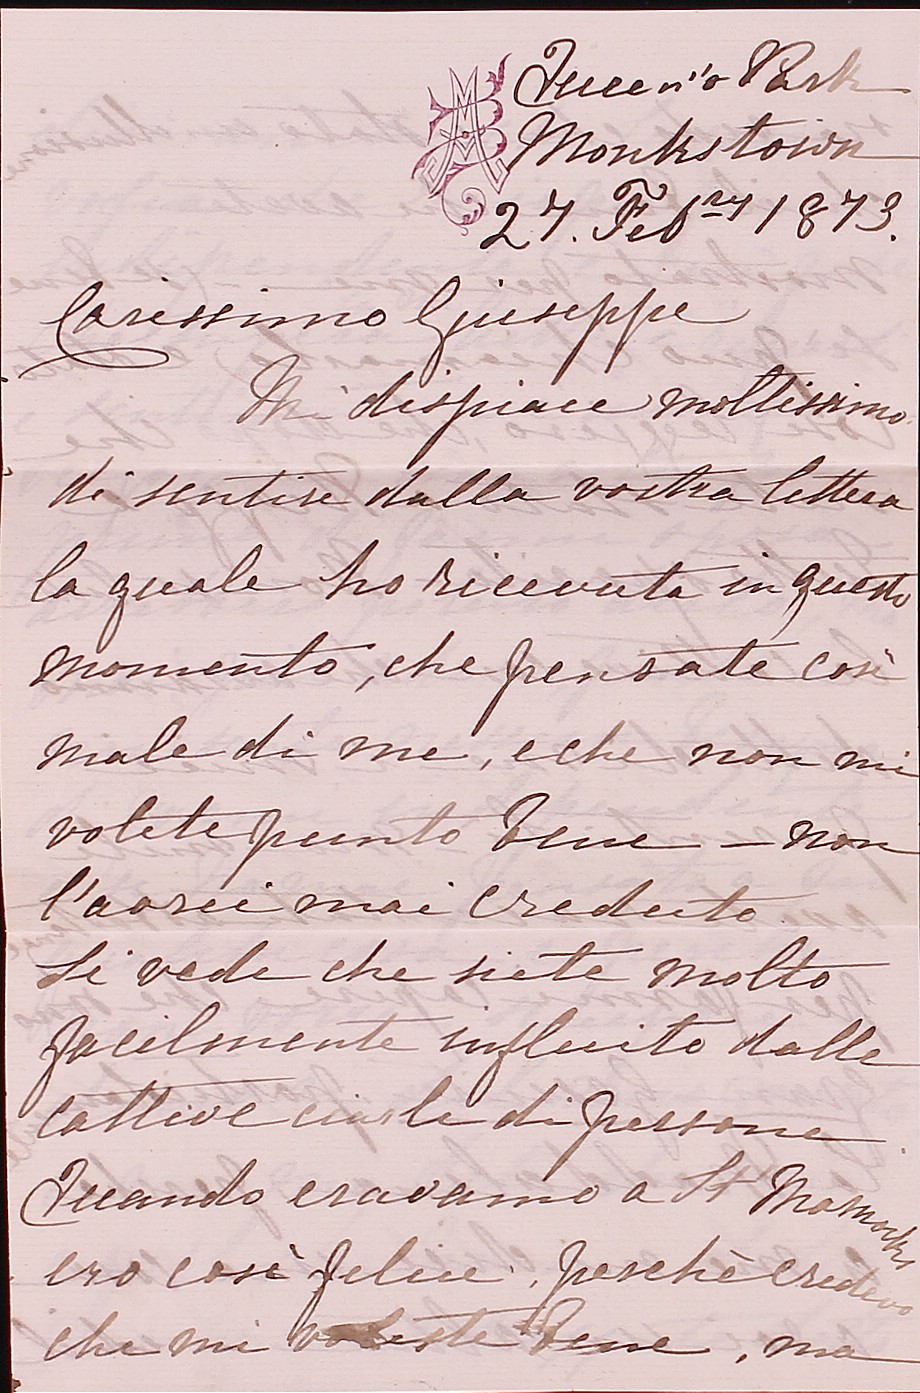 Queen's Park
Monkstown
27. Feb^ry 1873.
Carissimo Giuseppe
Mi dispiace moltissimo
di sentire dalla vostra lettera
la quale ho ricevuta in questo
momento, che pensate così
male di me, e che non mi
volete punto bene – non
l'avrei mai creduto.
Si vede che siete molto
facilmente influito dalle
cattive ciarle di persone
Quando eravamo a St
ero così felice, perchè credevo
che mi voleste bene, ma